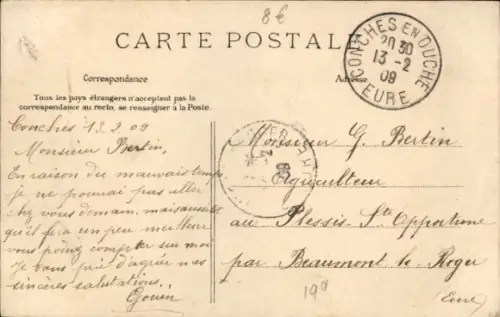 8€
CARTE POSTALE
Correspondance
Adresse
Tous les pays étrangers n'acceptent pas la
correspondance au recto, se renseigner à la Poste.
CONCHES EN OUCHE
20 30
13 - 2
09
EURE
Conches 13.2.09
Monsieur Bertin,
En raison du mauvais temps
je ne pourrai pas aller
chez vous demain, mais aussitôt
qu'il fera un peu meilleur
vous pouvez compter sur moi
Je vous prie d'agréer mes
sincères salutations.
Gouen
Monsieur G. Bertin
Apiculteur
au Plessis Ste Opportune
par Beaumont le Roger
(Eure)
190